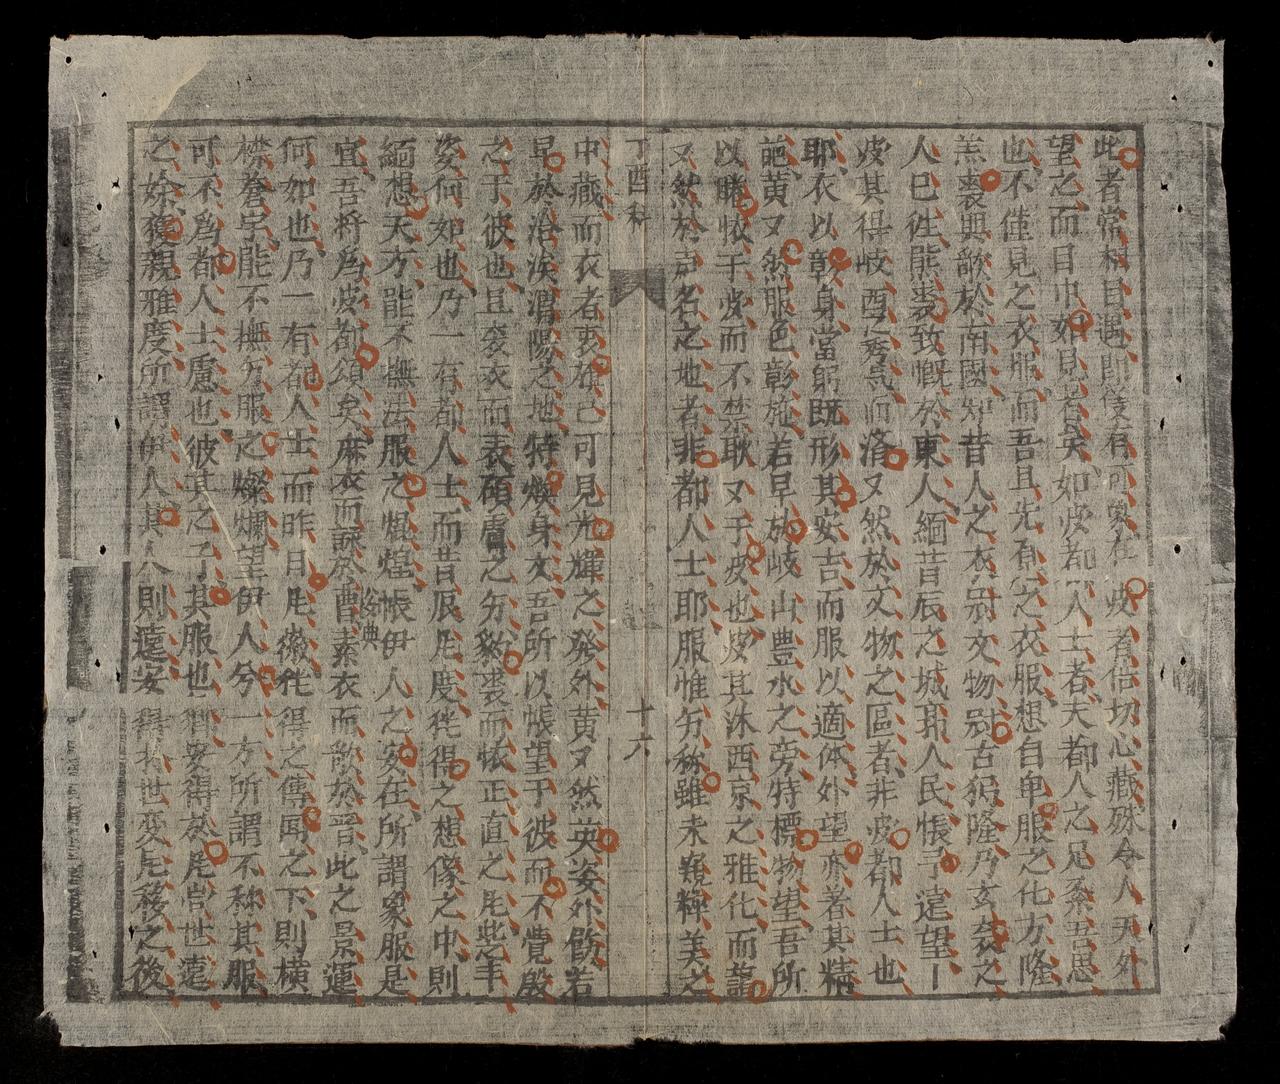 此者常相目遇即後有可象在彼者倍切心藏殊令人天外
望之而目中如見者矣如彼都人士者夫都人之足系吾思
也不僅見之衣服而吾且先有定之衣服想自甲服之化方隆
羔裘興歌於南國知昔人之衣冠文物別古婚隆乃玄衮之
人已徃熊裘致慨於東人緬昔辰之城郭人民悵予遠望一
彼其得岐西秀氣而洛又然於文物之區者非彼都人士也
耶衣以彰身當躬既形其安吉而服以適体外望亦著其精
葩黃又然服色彰施若早於岐山豊水之旁特標物望吾所
以睠懷于彼而不禁耿又于彼也彼其沐西京之雅化而藹
又然於声名之地者非都人士耶服惟匀称雖未親繹美之
丁酉科
十六
中藏而衣者衷旅已可見光輝之発外黃又然英姿外啟若
早於治涘渭陽之地特煥身文吾所以悵望于彼而不覺殷
之于彼也且衮衣而表碩膚之匀豹裘而懷正直之風些丰
姿何如也乃一有都人士而昔辰風度徃得之想像之中則
緬想天方能不撫法服之焜煌悵伊人之安在所謂象服是
宜吾将為彼都頌矣麻衣而詠於曹素衣而歌於晋此之景運
何如也乃一有都人士而昨日風徽徃得之傳聞之下則横
襟蒼宇能不撫乃服之燦爛望伊人兮一方所謂不称其服
可不為都人士慮也彼其之子其服也獨安得於風豈世遠
之餘獲親雅度所謂伊人其人則遠安得於世変風移之後